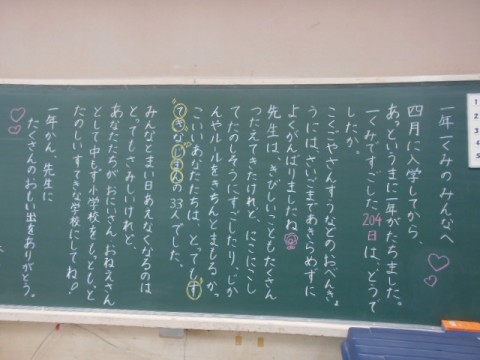 一年一くみのみんなへ
四月に入学してから、
あっというまに一年がたちました。
一くみですごした204日は、どうで
したか。
こくごやさんすうなどのおべんきょ
うには、さいごまであきらめずに
よくがんばりましたね
先生は、きびしいこともたくさん
つたえてきたけれど、にこにこし
てたのしそうにすごしたり、じか
んやルールをきちんとまもるかっ
こいいあなたたちは、とってもす
てきなじまんの33人でした。
みんなとまい日あえなくなるのは
とってもさみしいけれど、
あなたたちがおにいさん、おねえさん
として中もず小学校をもっともっと
たのしいすてきな学校にしてね!
一年かん、先生に
たくさんのおもい出をありがとう。
1
2
3
4
5